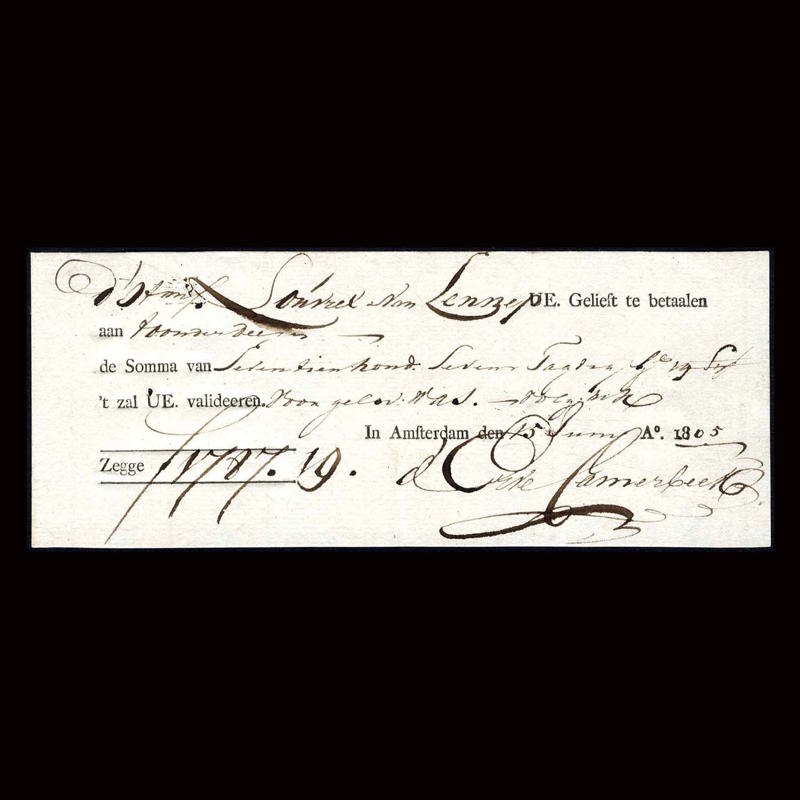 Louvrex van Lennep UE. Gelieft te betaalen
aan toonder deeses
de Somma van Seventienhond. Seven Tagtig
't zal UE. valideeren. Voor gelev: Was.
In Amsterdam den 15 Juny Aº. 1805
Zegge ƒ1787.19.
d'Camerbeek